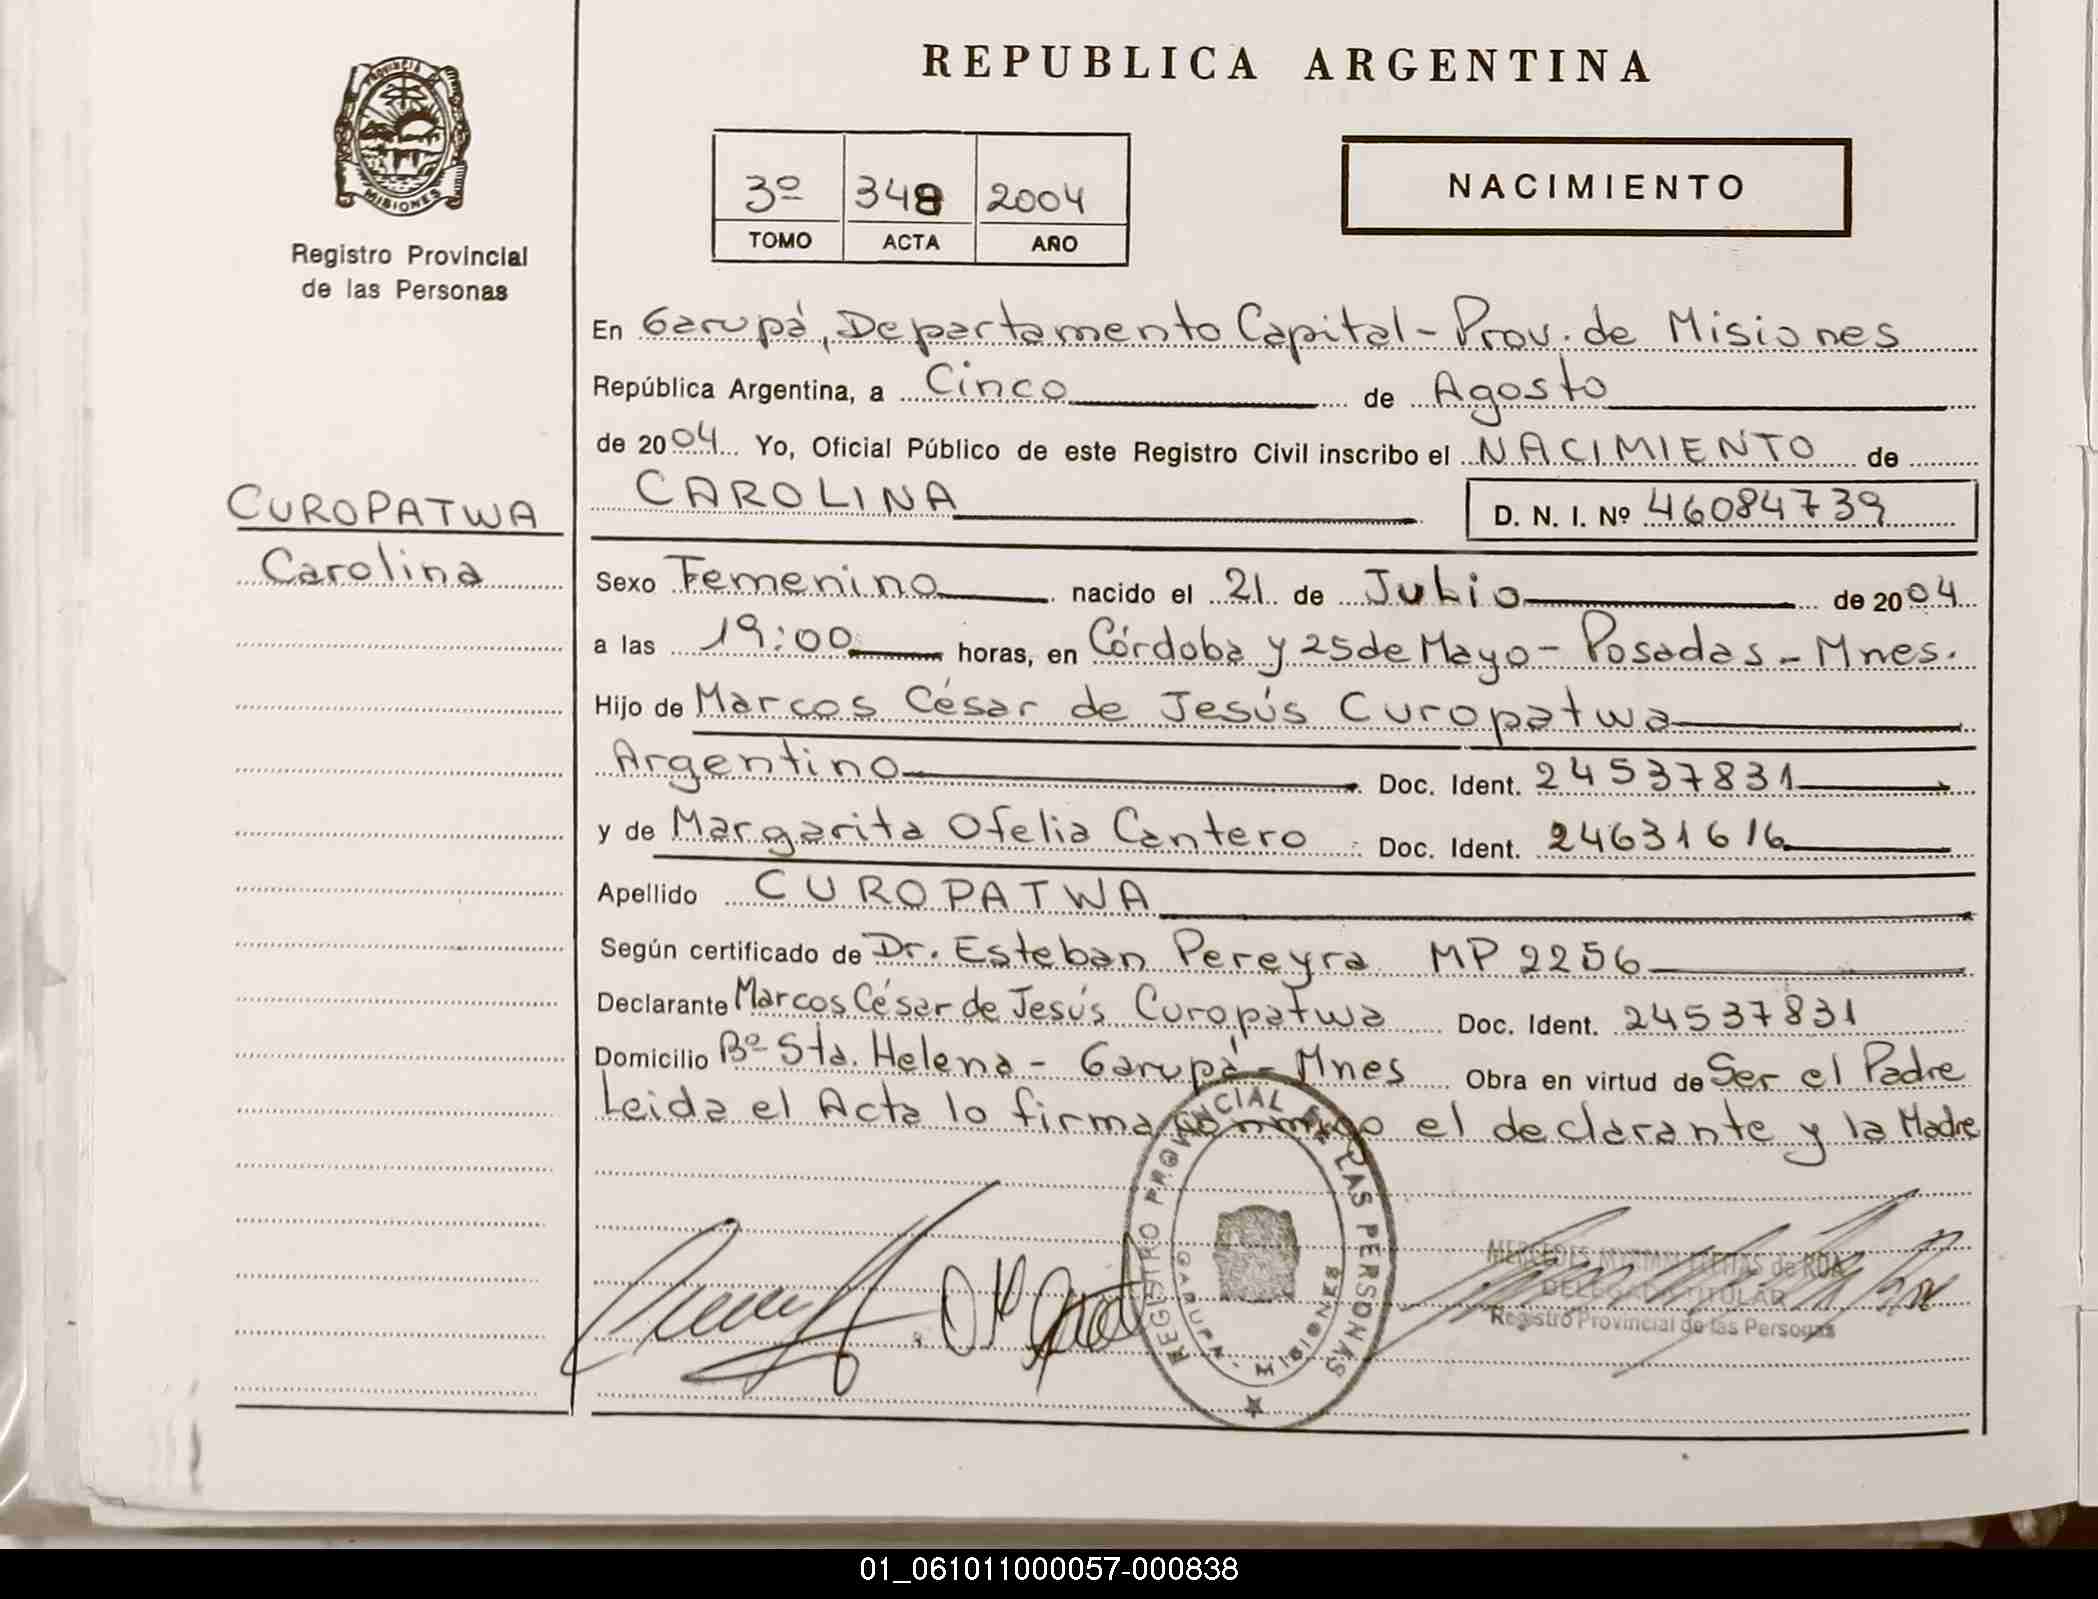 REPUBLICA ARGENTINA
PROVINCIA DE
MISIONES
Registro Provincial
de las Personas
3º 348 2004
TOMO ACTA AÑO
NACIMIENTO
En Garupá, Departamento Capital - Prov. de Misiones
República Argentina, a Cinco de Agosto
de 2004 Yo, Oficial Público de este Registro Civil inscribo el NACIMIENTO de
CAROLINA D. N. I. Nº 46084739
CUROPATWA
Carolina
Sexo Femenino nacido el 21 de Julio de 2004
a las 19:00 horas, en Córdoba y 25 de Mayo - Posadas - Mnes.
Hijo de Marcos César de Jesús Curopatwa
Argentino Doc. Ident. 24537831
y de Margarita Ofelia Cantero Doc. Ident. 24631616
Apellido CUROPATWA
Según certificado de Dr. Esteban Pereyra MP 2256
Declarante Marcos César de Jesús Curopatwa Doc. Ident. 24537831
Domicilio Bº Sta. Helena - Garupá - Mnes Obra en virtud de Ser el Padre
Leida el Acta lo firma conmigo el declarante y la Madre
REGISTRO PROVINCIAL DE LAS PERSONAS
GARUPA - MISIONES
MERCEDES de ROA
DELEGADO TITULAR
Registro Provincial de las Personas
01_061011000057-000838